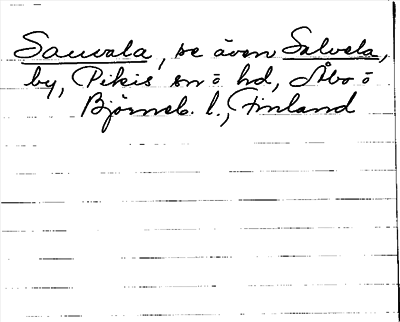 Sauvala, se även Salvela,
by, Pikis sn o hd, Åbo o
Björneb. l., Finland